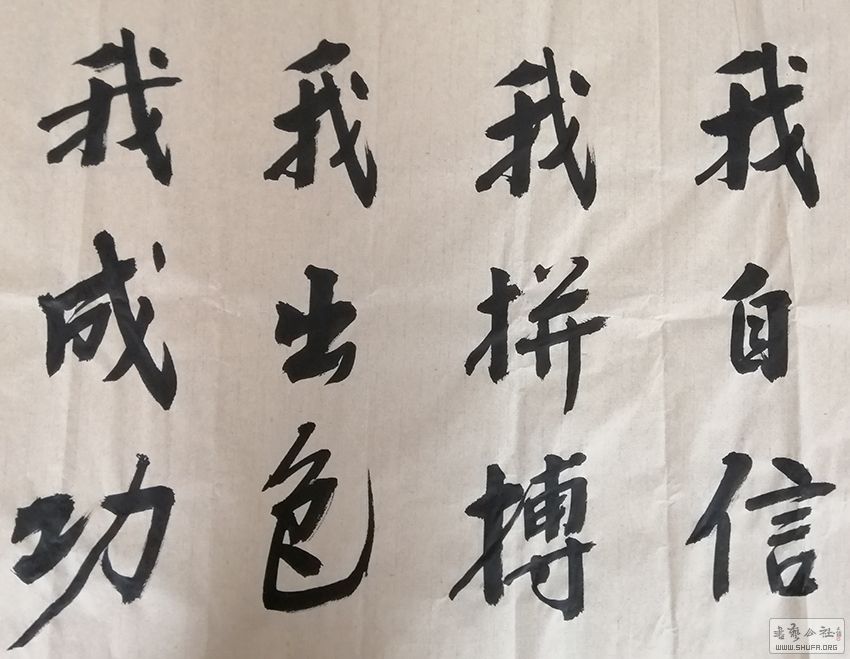 我自信
我拼搏
我出色
我成功
书艺公社
WWW.SHUFA.ORG